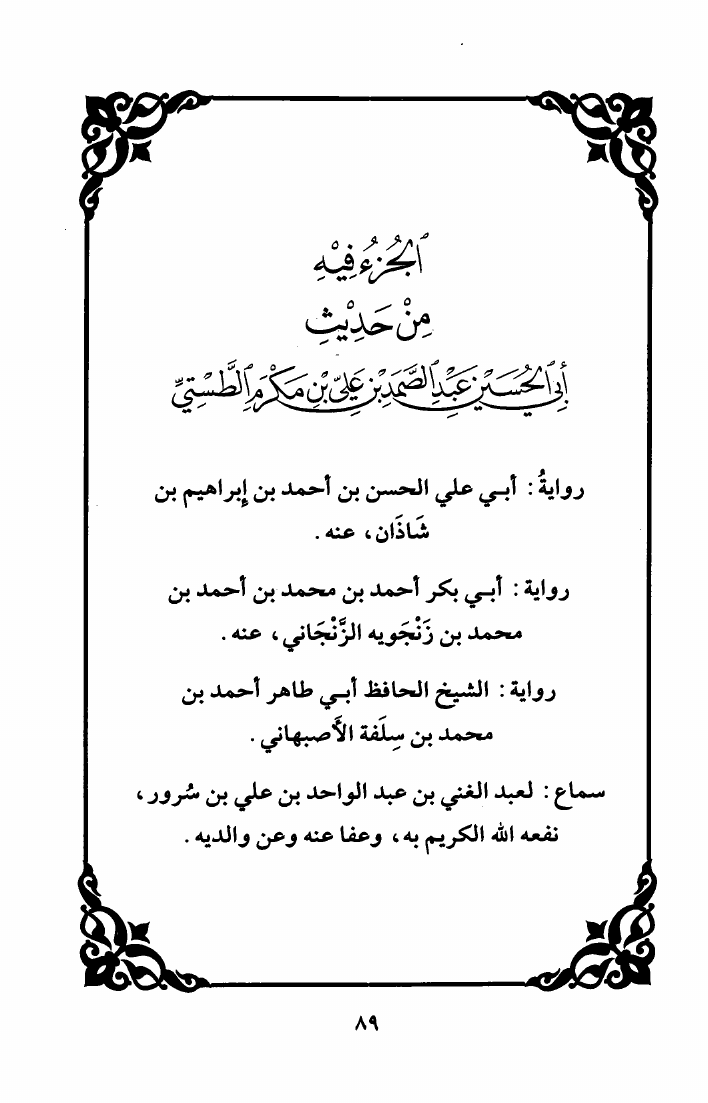 ٱلجُزْءُ فِيْهِ
مِنْ حَدِيْثِ
أَبِي ٱلحُسَيْنِ عَبْدِ ٱلصَّمَدِ بْنِ عَلِيِّ بْنِ مُكْرَمِ ٱلطَّسْتِيِّ
روايةُ : أبي علي الحسن بن أحمد بن إبراهيم بن
شَاذَان، عنه .
رواية : أبي بكر أحمد بن محمد بن أحمد بن
محمد بن زَنْجَويه الزَّنْجَاني، عنه .
رواية : الشيخ الحافظ أبي طاهر أحمد بن
محمد بن سِلَفة الأَصبهاني .
سماع : لعبد الغني بن عبد الواحد بن علي بن سُرور،
نفعه الله الكريم به، وعفا عنه وعن والديه .
٨٩